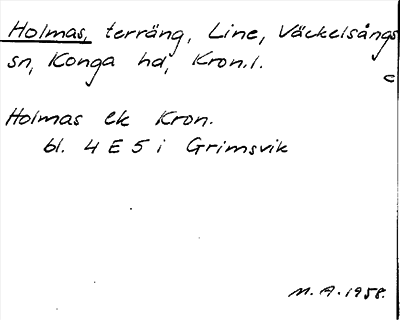 Holmas, terräng, Line, Väckelsångs
sn, Konga hd, Kron.l.
c
Holmas ek Kron.
bl. 4 E 5 i Grimsvik
M. A. 1958.